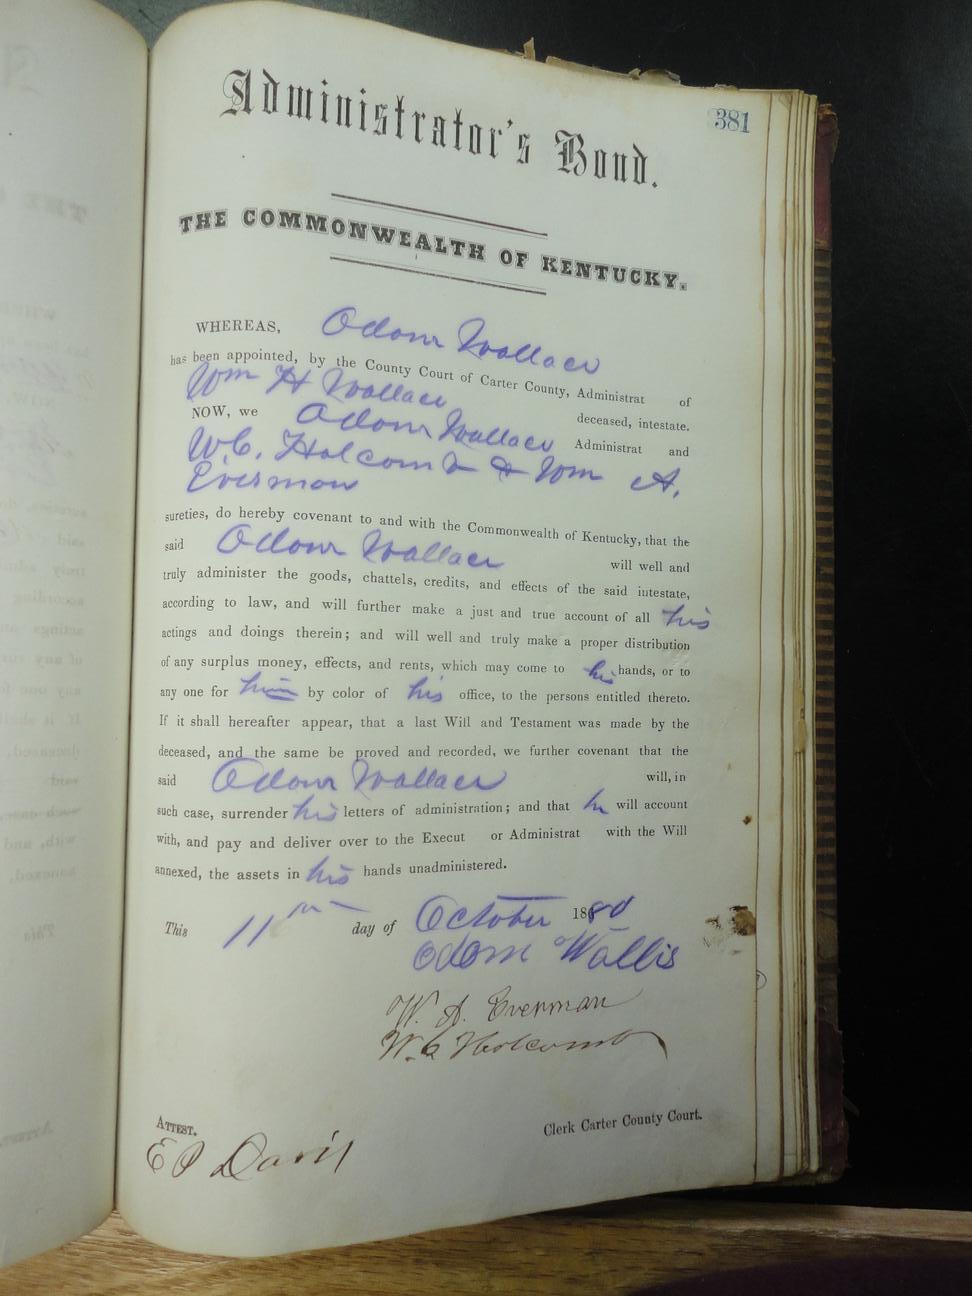 381
Administrator's Bond.
THE COMMONWEALTH OF KENTUCKY.
WHEREAS, Odom Wallace
has been appointed, by the County Court of Carter County, Administrat of
Wm H Wallace deceased, intestate.
NOW, we Odom Wallace Administrat and
W.C. Holcomb & Wm A.
Everman
sureties, do hereby covenant to and with the Commonwealth of Kentucky, that the
said Odom Wallace will well and
truly administer the goods, chattels, credits, and effects of the said intestate,
according to law, and will further make a just and true account of all his
actings and doings therein; and will well and truly make a proper distribution
of any surplus money, effects, and rents, which may come to his hands, or to
any one for him by color of his office, to the persons entitled thereto.
If it shall hereafter appear, that a last Will and Testament was made by the
deceased, and the same be proved and recorded, we further covenant that the
said Odom Wallace will, in
such case, surrender his letters of administration; and that he will account
with, and pay and deliver over to the Execut or Administrat with the Will
annexed, the assets in his hands unadministered.
This 11th day of October 1880
Odom Wallis
W. A. Everman
W. C Holcomb
ATTEST. Clerk Carter County Court.
E P Davis